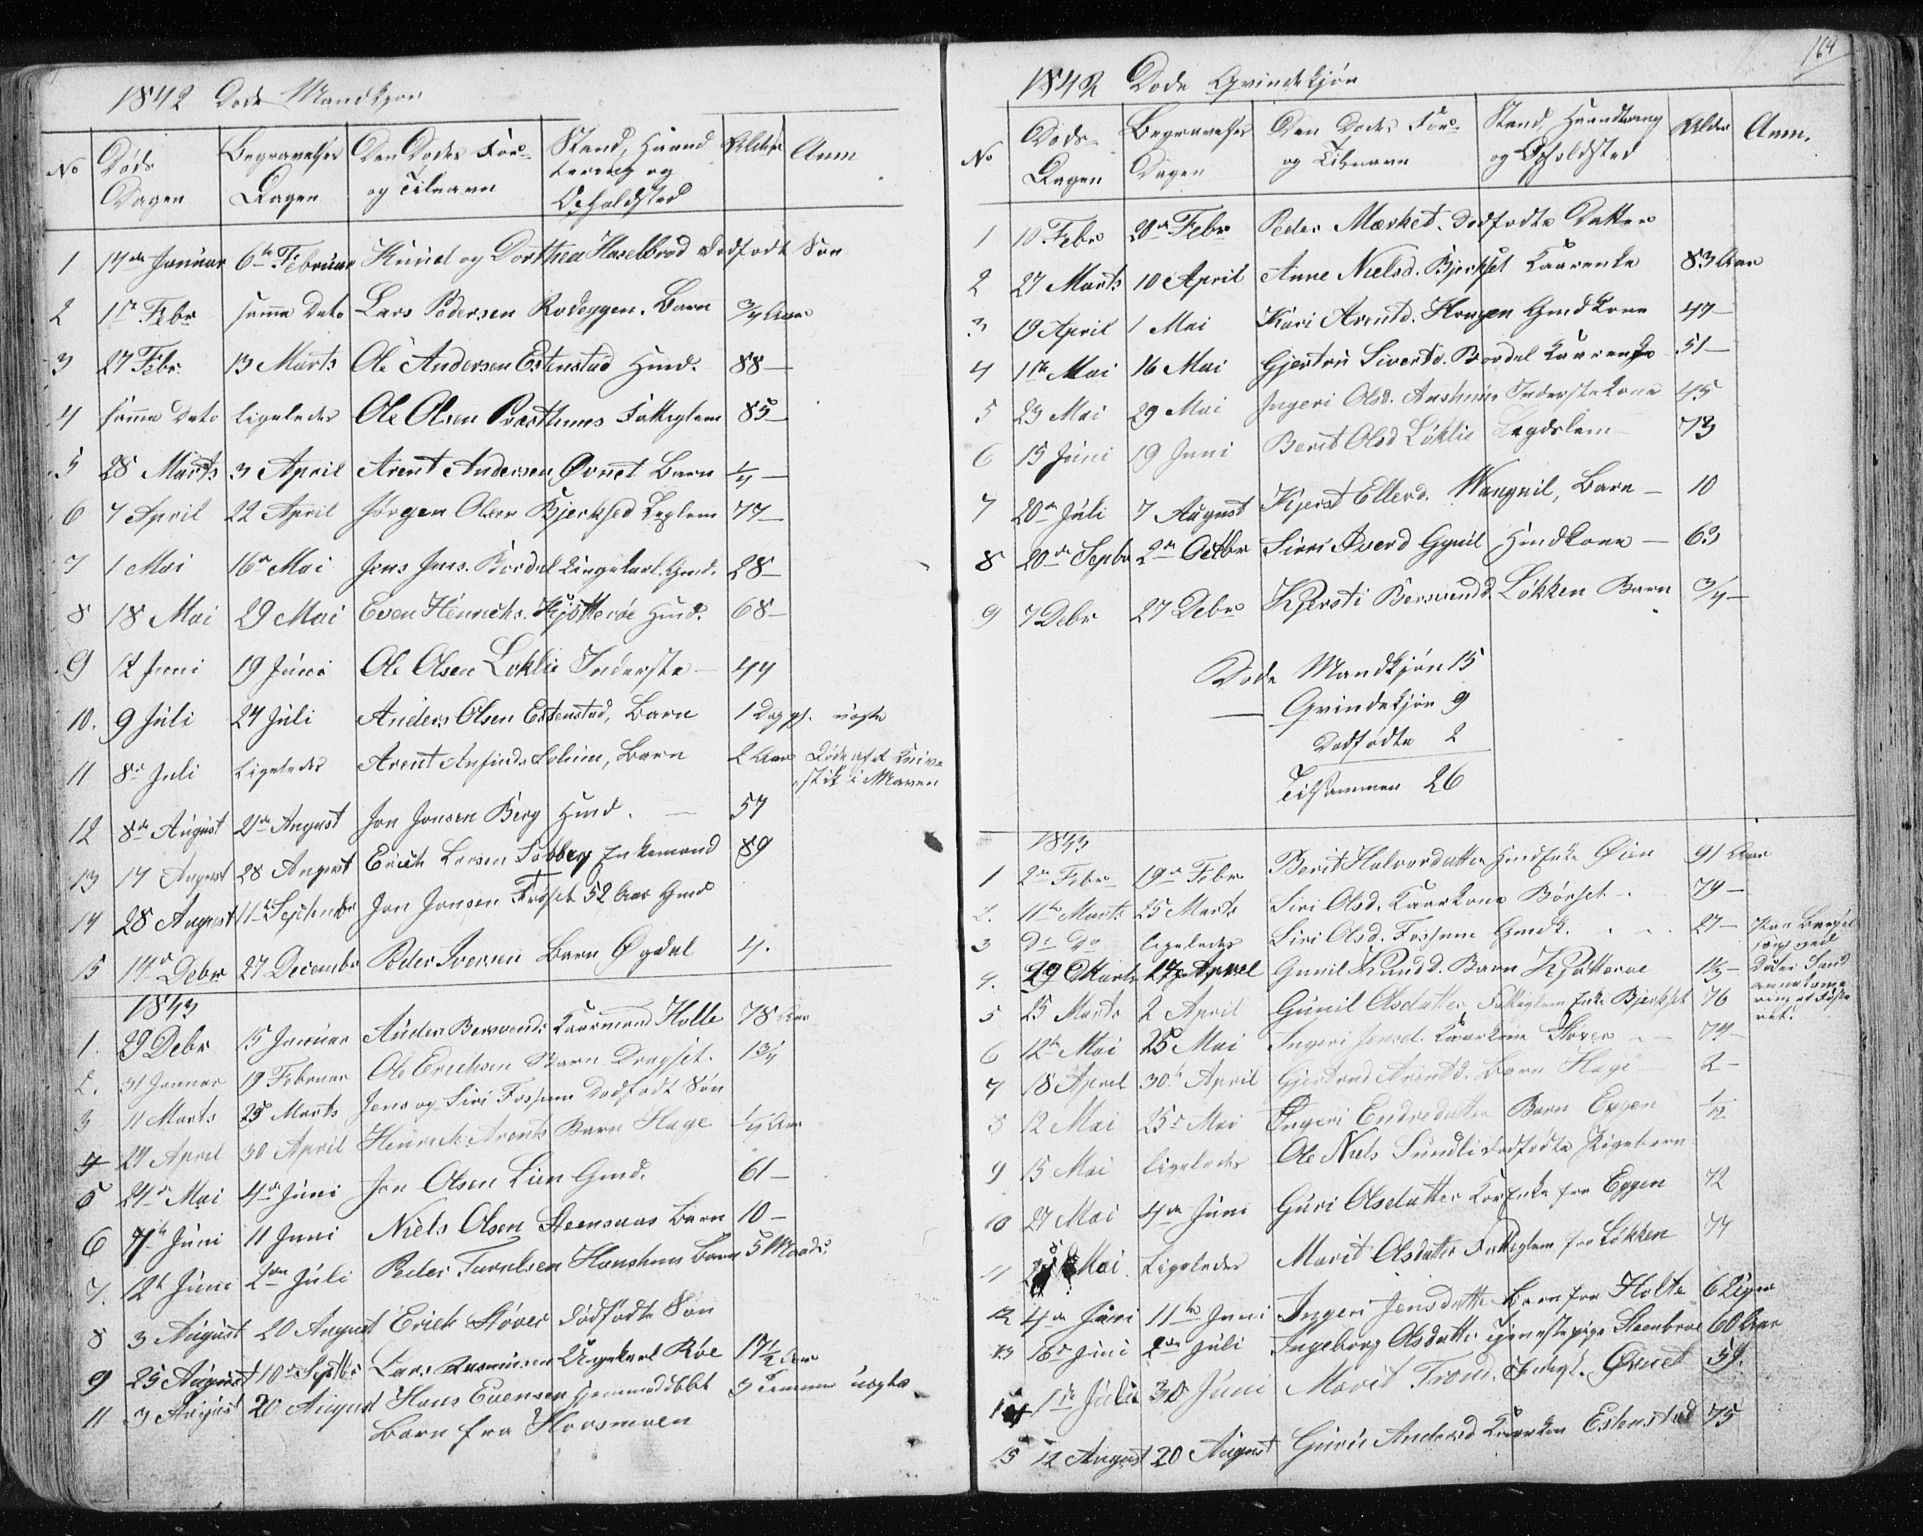 1842 Døde Mandkjøn
No
Døds Dagen
Begravelses Dagen
Den Dødes For- og Tilnavn
Stand, Haandtering og Opholdsted
Alder
Anm
1 17de Januar 6te Februar Knud og Dorthea Hasselbrod Dødfødt Søn
2 1ste Febr samme Dato Lars Pedersen Rodeggen. Barn 3/4 Aar
3 27 Febr. 13 Marts Ole Andersen Estenstad Hmd. 88 —
4 samme Dato ligeledes Ole Olsen Præsthuus Fattiglem 85 —
5 28 Marts 3 April Arent Andersen Øvret Barn 1/4 —
6 7 April 22 April Jørgen Olsen Bjerkset Leglem 77 —
7 1 Mai 16de Mai Jens Jens. Bordal Ungekarl. Gmd. 28 —
8 18 Mai 29 Mai Even Henrichs. Kjøtterøe Hmd. 68 —
9 12 Juni 19 Juni Ole Olsen Løklie Inderste — 44
10. 9 Juli 24 Juli Anders Olsen Estenstad, Barn 1 Dag gl. uægte
11 8de Juli Ligeledes Arent Anfinds. Solum, Barn 2 Aar Døde af et Kniv
stik i Maven
12 8de August 21de August Jon Jonsen Berg Hmd. — 57
13 17 August 28 August Erich Larsen Solberg Enkemand 89
14 28 August 11te September Jon Jonsen Frøset 52 Aar Gmd
15 14de Debr 27 December Peder Iversen Barn Øgdal 4.
1843
1. 29 Debr 15 Januar Anders Bersvends. Kaarmand Holte 78 Aar
2. 31 Januar 19 Februar Ole Erichsen Barn Dragset. 1 3/4
3 11 Marts 25 Marts Jens og Siri Fossum Dødfødt Søn
4 24 April 30 April Henrich Arents. Barn Hage 1/4 Aar
5 24de Mai 4de Juni Jon Olsen Lien Gmd. 61 —
6 7de Juni 11 Juni Niels Olsen Steensaas Barn 10 —
7. 12te Juni 2den Juli Peder Hanshuus Barn 5 Maad.
8 3 August 20 August Erich Høver Dødfødte Søn
9 25 August 10de Septbr Lars Rasmusen Ungekarl Røe 17 1/2 Aar
11 3 August 20 August Hans Evensen Hjemmedøbt 3 Timer uægte
Barn fra Hoosmoen
164
1842 Døde Qvindekjøn
No
Døds- Dagen
Begravelses Dagen
Den Dødes For- og Tilnavn
Stand, Haandtering og Opholdsted
Alder
Anm.
1 10 Febr 20de Febr Peder Mærket. Dødfødte Datter
2 27 Marts 10 April Anne Nielsd. Bjerkset Kaarenke 83 Aar
3 9 April 1 Mai Kari Arentd. Haugen Gmdkone 47 —
4 1ste Mai 16 Mai Gjertru Sivertsd. Bordal Kaarenke 51 —
5 23 Mai 29 Mai Ingeri Olsd. Inderstekone 45
6 15 Juni 19 Juni Berit Olsd Løklie Legdslem — 73
7 20de Juli 7 August Kjerst Ellevd. Wangnil, Barn — 10
8 20de Septbr 2de Octbr Siri Iverd Gynil Hmdkone — 63
9 7 Debr 27 Debr Kjersti Bersvendd. Løkken Barn 3/4 —
Døde Mandkjøn 15
— Qvindekjøn 9
Dødfødte 2
Tilsammen 26
1843
1 2de Febr 19de Febr Berit Halvordatter Hmdenke Øien 91 Aar
2. 11te Marts 25 Marts Siri Olsd. Kaarkone Børset — 79 —
3 Do Do ligeledes Siri Olsd. Fossum Gmdk. 27 —
4. 29 Marts 17 April Gunil Knudd. Barn Kjøtteroe 1 1/3 —
5 25 Marts 2 April Gunil Olsdatter Fattiglem Enke Bjerkset 76
6 12te Mai 25 Mai Ingeri Jensd. Kaarkone — 74 —
7 18 April 30te April Gjertrud Arentd. Barn Hage 2 —
8 12 Mai 25de Mai Ingeri Endredatter Barn Eggen 1/12
9 15 Mai ligeledes Ole Niels. Sundli dødfødte Pigebarn
10 27 Mai 4de Juni Guri Olsdatter Kaarenke fra Eggen 72
11 Mai Ligeledes Marit Olsdatter Fattiglem fra Løkken 77
12 4de Juni 11te Juni Ingeri Jensdatter Barn fra Holte 6 Uger
13 16de Juni 2den Juli Ingeborg Olsdatter Tjenestepige Steenbroe 60 Aar
14 1ste Juli 30 Juni Marit Trond. Øvret 59.
15 12 August 20 August Guru Andersd Kaarkone Estenstad 75